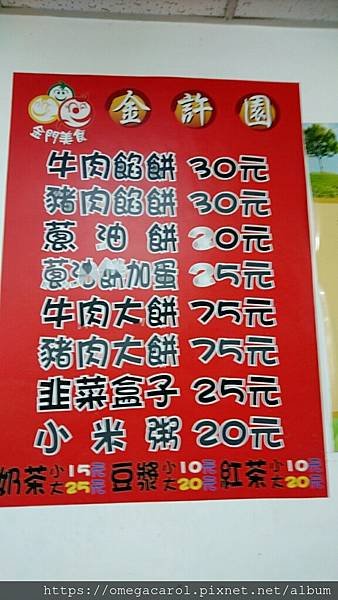 金許園
金門美食
牛肉餡餅 30元
豬肉餡餅 30元
蔥油餅 20元
蔥油餅加蛋 25元
牛肉大餅 75元
豬肉大餅 75元
韭菜盒子 25元
小米粥 20元
奶茶 小15元 大25元 豆漿 小10元 大20元 紅茶 小10元 大20元
https://omegacarol.pixnet.net/album